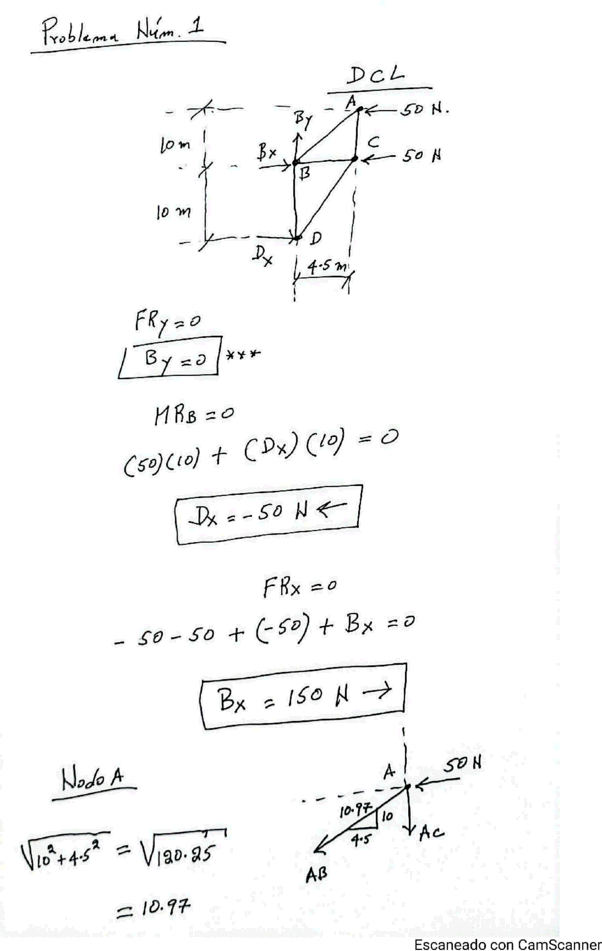 Problema Núm. 1
DCL
A
50 N.
By
10 m
Bx
C
50 N
B
10 m
Dx
D
4.5 m
FRy = 0
By = 0 ***
MRB = 0
(50)(10) + (Dx)(10) = 0
Dx = -50 N ←
FRx = 0
- 50 - 50 + (-50) + Bx = 0
Bx = 150 N →
Nodo A
A
50 N
10.97
10
4.5
AC
AB
√10² + 4.5² = √120.25
= 10.97
Escaneado con CamScanner